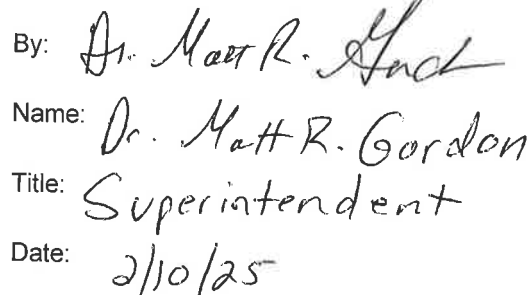 By: Dr. Matt R.
Name: Dr. Matt R. Gordon
Title: Superintendent
Date: 2/10/25